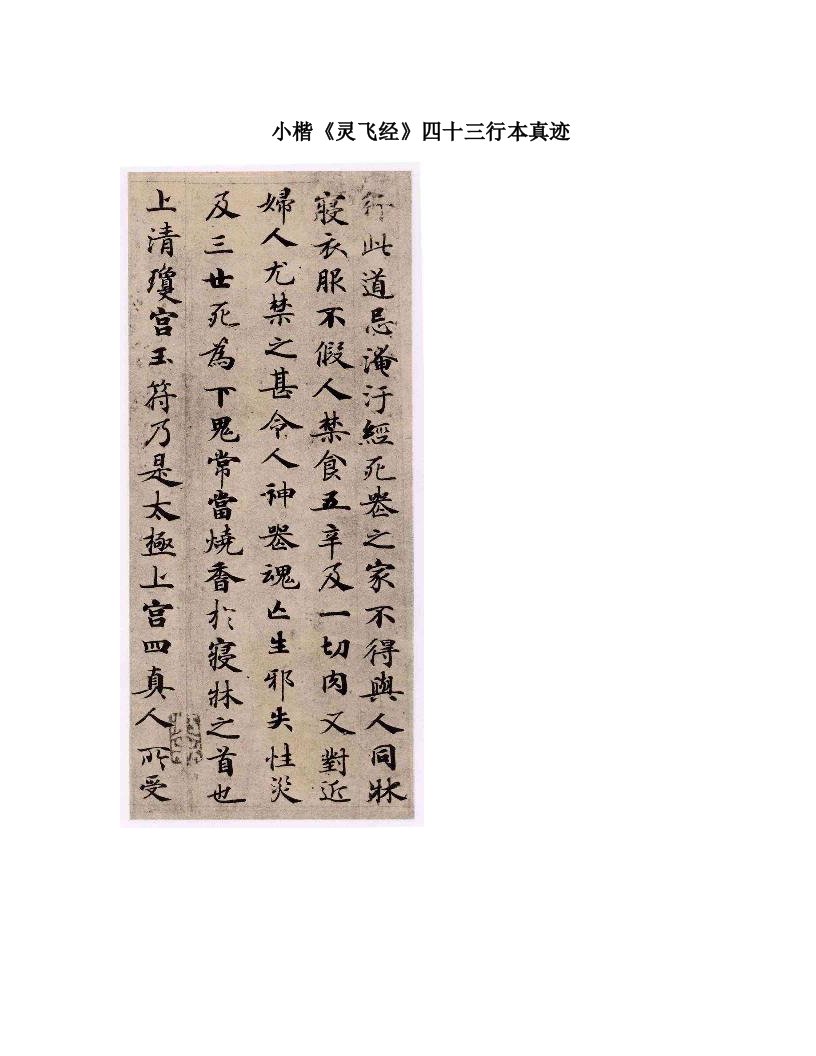 小楷《灵飞经》四十三行本真迹
行此道忌淹汙經死喪之家不得與人同牀
寢衣服不假人禁食五辛及一切肉又對近
婦人尤禁之甚令人神喪魂亡生邪失性災
及三世死為下鬼常當燒香於寢牀之首也
上清瓊宮玉符乃是太極上宮四真人所受